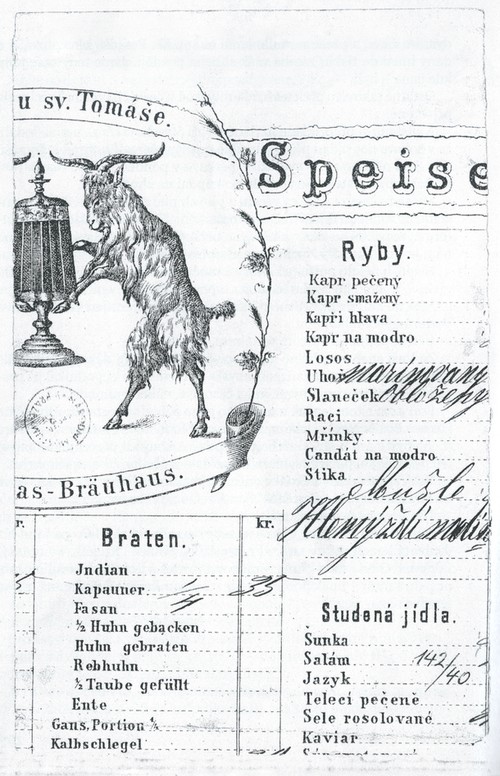 u sv. Tomáše.
Speise
as-Bräuhaus.
Ryby.
Kapr pečený
Kapr smažený
Kapří hlava
Kapr na modro
Losos
Uhoř marinovaný
Slaneček obložený
Raci
Mřínky
Candát na modro
Štika
Mušle
Hlemýždi
r. kr.
Braten.
Indian
Kapauner 1/4 35
Fasan
½ Huhn gebacken
Huhn gebraten
Rebhuhn
½ Taube gefüllt
Ente
Gans, Portion ¼
Kalbschlegel
Studená jídla.
Šunka
Salám 142/
Jazyk /40
Telecí pečeně
Sele rosolované
Kaviar